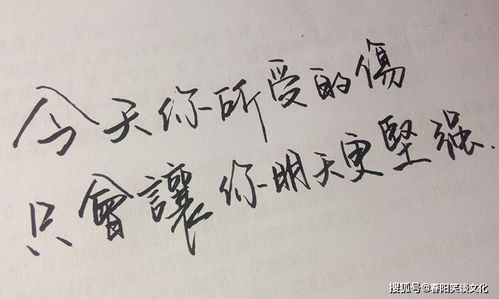 今天你所受的傷
只會讓你明天更堅强.
搜狐号@春阳笑谈文化